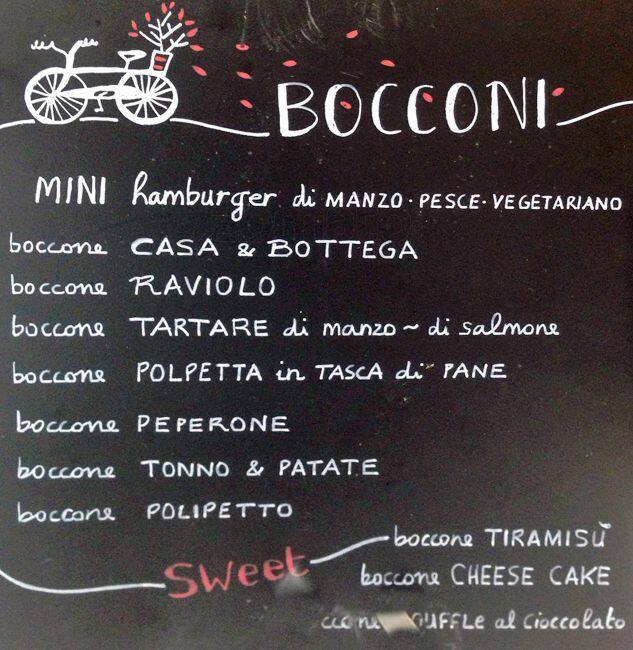 BOCCONI
MINI hamburger di MANZO · PESCE · VEGETARIANO
boccone CASA & BOTTEGA
boccone RAVIOLO
boccone TARTARE di manzo ~ di salmone
boccone POLPETTA in TASCA di PANE
boccone PEPERONE
boccone TONNO & PATATE
boccone POLIPETTO
sweet
boccone TIRAMISÙ
boccone CHEESE CAKE
al cioccolato